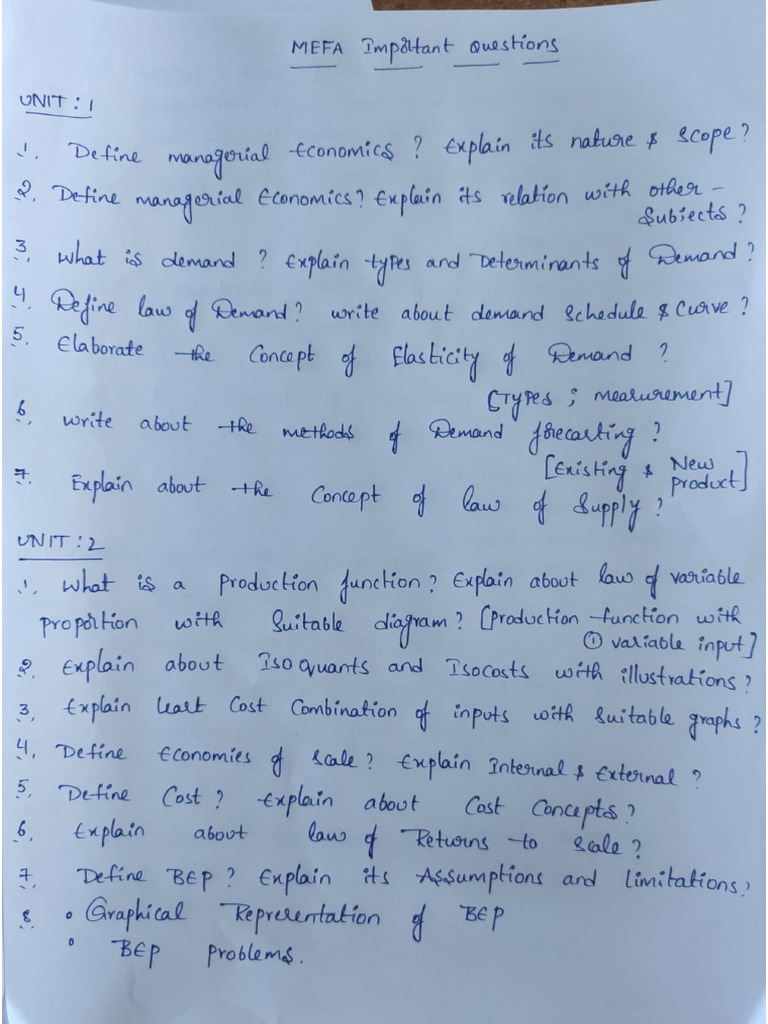 MEFA Important Questions
UNIT : 1
1. Define managerial Economics ? Explain its nature & Scope ?
2. Define managerial Economics ? Explain its relation with other -
Subjects ?
3. What is demand ? Explain types and Determinants of Demand ?
4. Define law of Demand ? write about demand Schedule & Curve ?
5. Elaborate the Concept of Elasticity of Demand ?
[Types ; measurement]
6. Write about the methods of Demand forecasting ?
[Existing & New product]
7. Explain about the Concept of law of Supply ?
UNIT : 2
1. What is a production function ? Explain about law of variable
proportion with Suitable diagram ? [production function with
① variable input]
2. Explain about Iso quants and Isocosts with illustrations ?
3. Explain least Cost Combination of inputs with Suitable graphs ?
4. Define Economies of Scale ? Explain Internal & External ?
5. Define Cost ? Explain about Cost Concepts ?
6. Explain about law of Returns to Scale ?
7. Define BEP ? Explain its Assumptions and limitations ?
8. • Graphical Representation of BEP
• BEP problems.